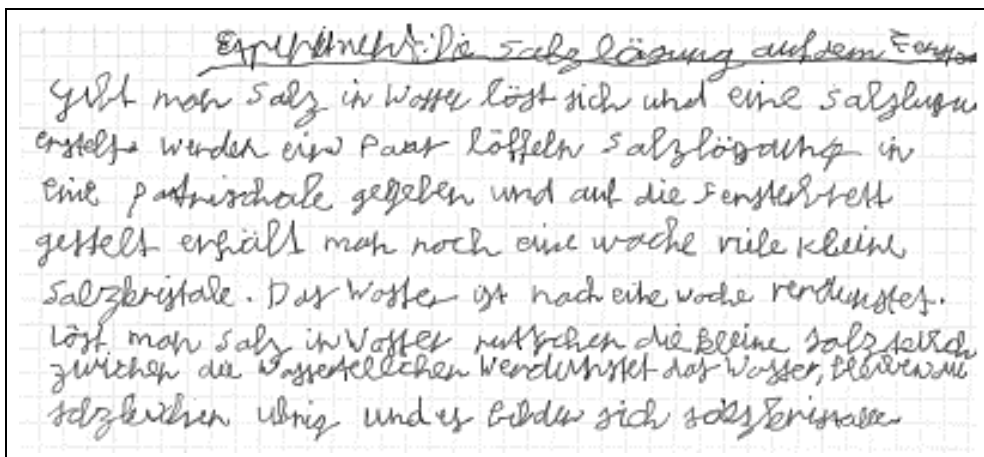 Experiment: Die salzlösung auf dem Fenster
Gibt man Salz in Wasser löst sich und eine salzlugu
erstelt werden ein Paar löffeln salzlösung in
eine petrischale gegeben und auf die Fensterbrett
gestelt erhält man noch eine woche viele kleine
salzkristale. Das Wasser ist nach eine woche verdunstet.
Löst man salz in Wasser rutschen die kleine salz teilch
zwichen die Wasserteilchen Werdunstet das Wasser, bleiben die
salzteilchen ubrig und es bilden sich salzkristalle